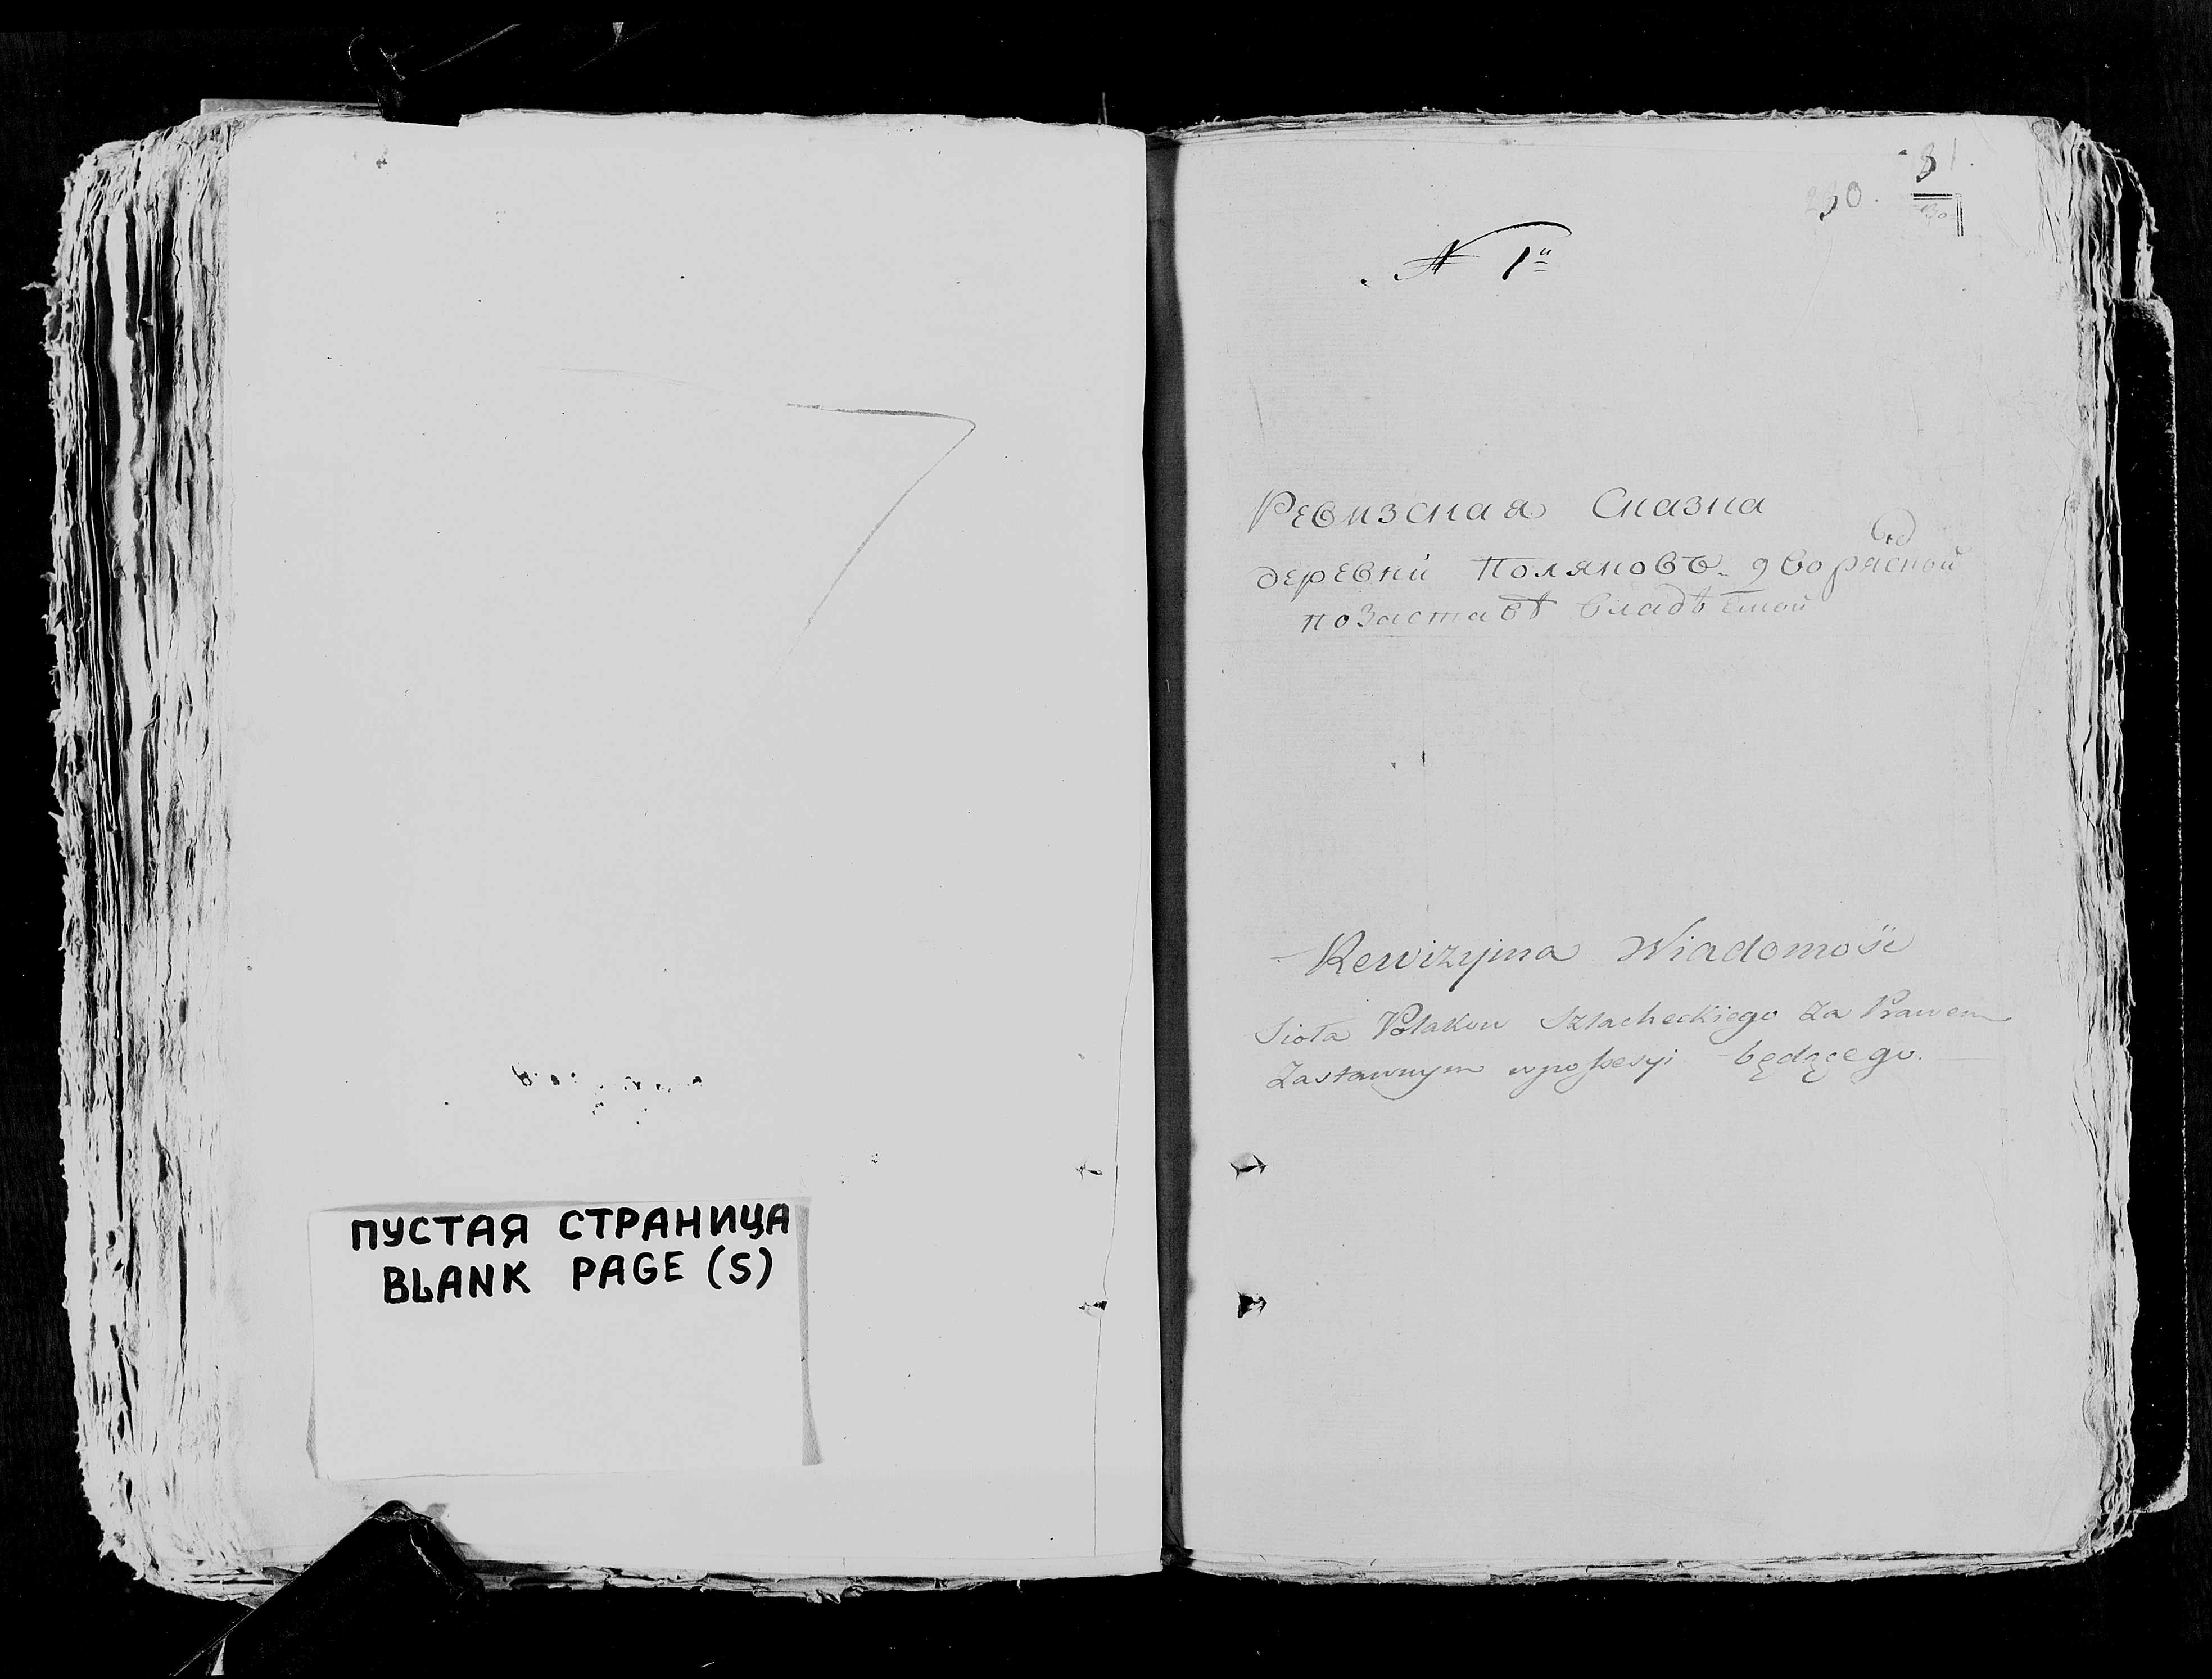 ПУСТАЯ СТРАНИЦА
BLANK PAGE (S)
31.
230.
30
N 1й
Ревизская Сказка
деревни Поляковъ дворянской
по Заставѣ владѣемой
Rewizyina Wiadomość
Sioła Polakow Szlacheckiego Za Prawem
Zastawnym w possesyi będącego.